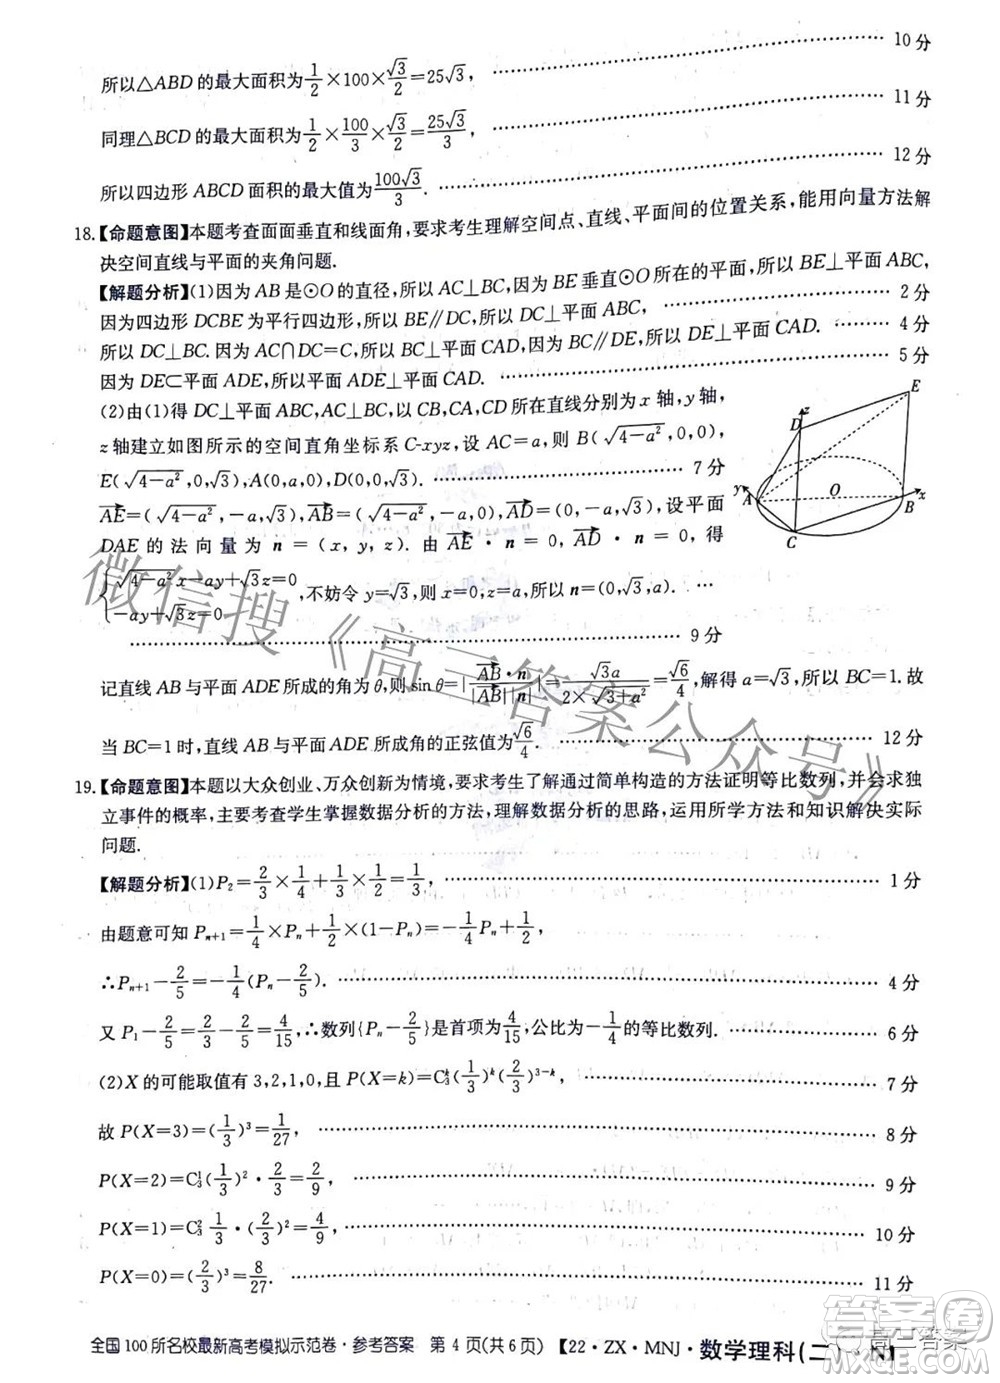 10 分
所以△ABD 的最大面积为 1/2×100×√3/2=25√3, 11 分
同理△BCD 的最大面积为 1/2×100/3×√3/2=25√3/3, 12 分
所以四边形 ABCD 面积的最大值为 100√3/3.
18.【命题意图】本题考查面面垂直和线面角,要求考生理解空间点、直线、平面间的位置关系,能用向量方法解
决空间直线与平面的夹角问题.
【解题分析】(1)因为 AB 是⊙O 的直径,所以 AC⊥BC,因为 BE 垂直⊙O 所在的平面,所以 BE⊥平面 ABC,
因为四边形 DCBE 为平行四边形,所以 BE∥DC,所以 DC⊥平面 ABC, 2 分
所以 DC⊥BC.因为 AC∩DC=C,所以 BC⊥平面 CAD,因为 BC∥DE,所以 DE⊥平面 CAD. 4 分
因为 DE⊂平面 ADE,所以平面 ADE⊥平面 CAD. 5 分
(2)由(1)得 DC⊥平面 ABC,AC⊥BC,以 CB,CA,CD 所在直线分别为 x 轴,y 轴,
z 轴建立如图所示的空间直角坐标系 C-xyz,设 AC=a,则 B(√4-a²,0,0),
E(√4-a²,0,√3),A(0,a,0),D(0,0,√3). 7 分
AE=(√4-a²,-a,√3),AB=(√4-a²,-a,0),AD=(0,-a,√3),设平面
DAE 的法向量为 n=(x,y,z).由 AE·n=0,AD·n=0,得
{√4-a²x-ay+√3z=0
-ay+√3z=0 ,不妨令 y=√3,则 x=0,z=a,所以 n=(0,√3,a). …
9 分
记直线 AB 与平面 ADE 所成的角为 θ,则 sin θ=|AB·n/|AB||n||=√3a/2×√3+a²=√6/4,解得 a=√3,所以 BC=1.故
当 BC=1 时,直线 AB 与平面 ADE 所成角的正弦值为 √6/4. 12 分
19.【命题意图】本题以大众创业、万众创新为情境,要求考生了解通过简单构造的方法证明等比数列,并会求独
立事件的概率,主要考查学生掌握数据分析的方法,理解数据分析的思路,运用所学方法和知识解决实际
问题.
【解题分析】(1)P₂=2/3×1/4+1/3×2/3=7/18... 1 分
由题意可知 Pₙ₊₁=1/4×Pₙ+1/2×(1-Pₙ)=-1/4Pₙ+1/2,
∴Pₙ₊₁-2/5=-1/4(Pₙ-2/5). 4 分
又 P₁-2/5=2/3-2/5=4/15,∴数列{Pₙ-2/5}是首项为4/15,公比为-1/4的等比数列. 6 分
(2)X 的可能取值有 3,2,1,0,且 P(X=k)=C₃ᵏ(1/3)ᵏ(2/3)³⁻ᵏ, 7 分
故 P(X=3)=(1/3)³=1/27, 8 分
P(X=2)=C₃¹(1/3)²·2/3=2/9, 9 分
P(X=1)=C₃² 1/3·(2/3)²=4/9, 10 分
P(X=0)=(2/3)³=8/27. 11 分
D
z
E
y
A
O
B
x
C
全国 100 所名校最新高考模拟示范卷·参考答案 第 4 页(共 6 页) 【22·ZX·MNJ·数学理科(二)
微信搜《高三答案公众号》
高三答案